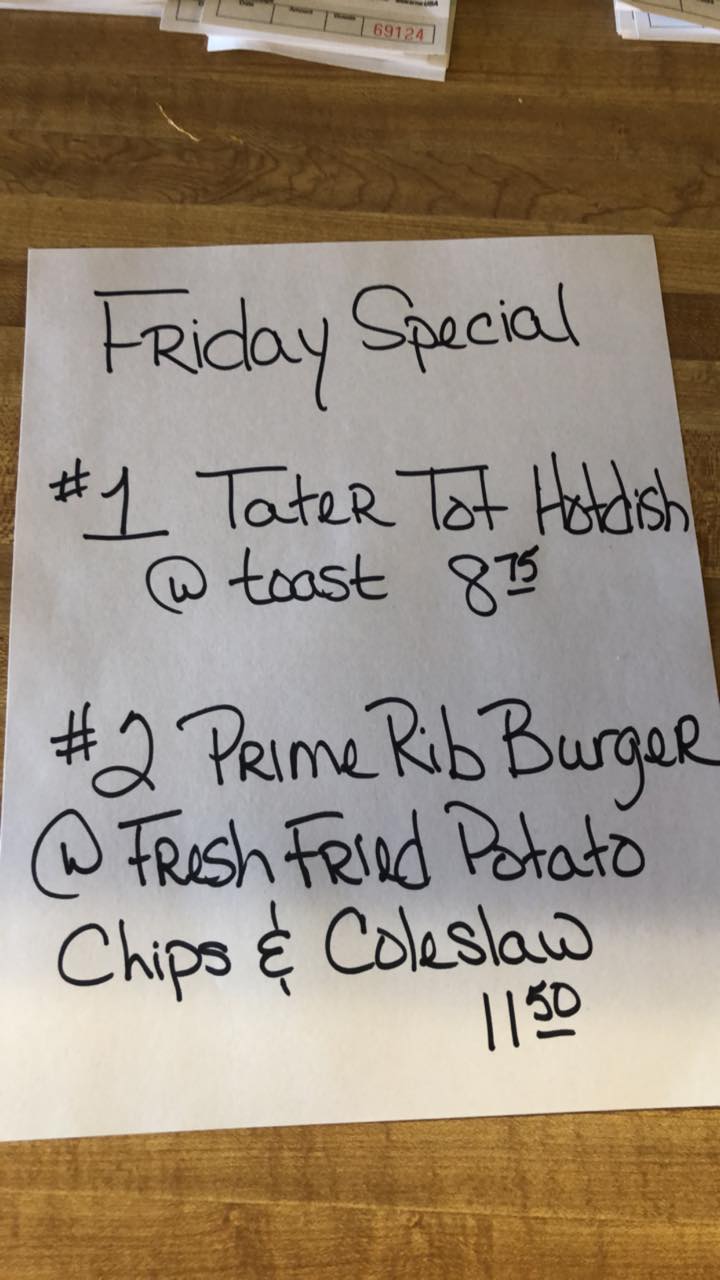 69124
Friday Special
#1 Tater Tot Hotdish
ⓦ toast 8 75
#2 Prime Rib Burger
ⓦ Fresh Fried Potato
Chips & Coleslaw
11 50